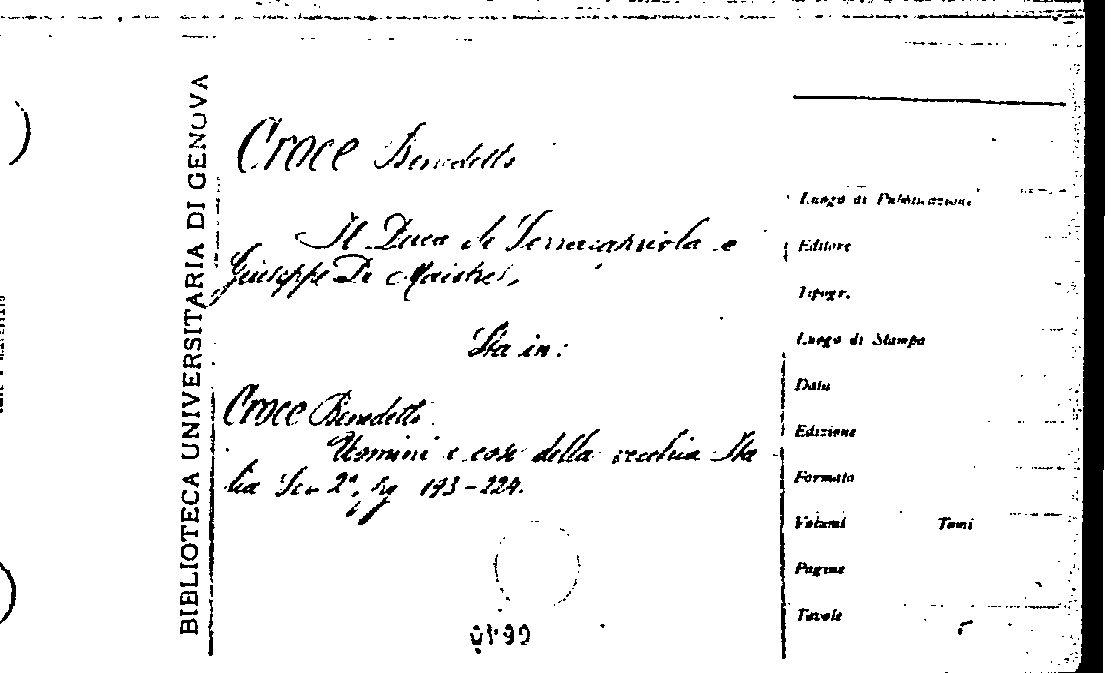 BIBLIOTECA UNIVERSITARIA DI GENOVA
Croce Benedetto
Il Duca di Serracapriola e
Giuseppe De Maistre,
Sta in:
Croce Benedetto
Uomini e cose della vecchia Ita
lia Ser. 2ª, pg 193-224.
Luogo di Pubblicazione
Editore
Tipogr.
Luogo di Stampa
Data
Edizione
Formato
Volumi Tomi
Pagine
Tavole